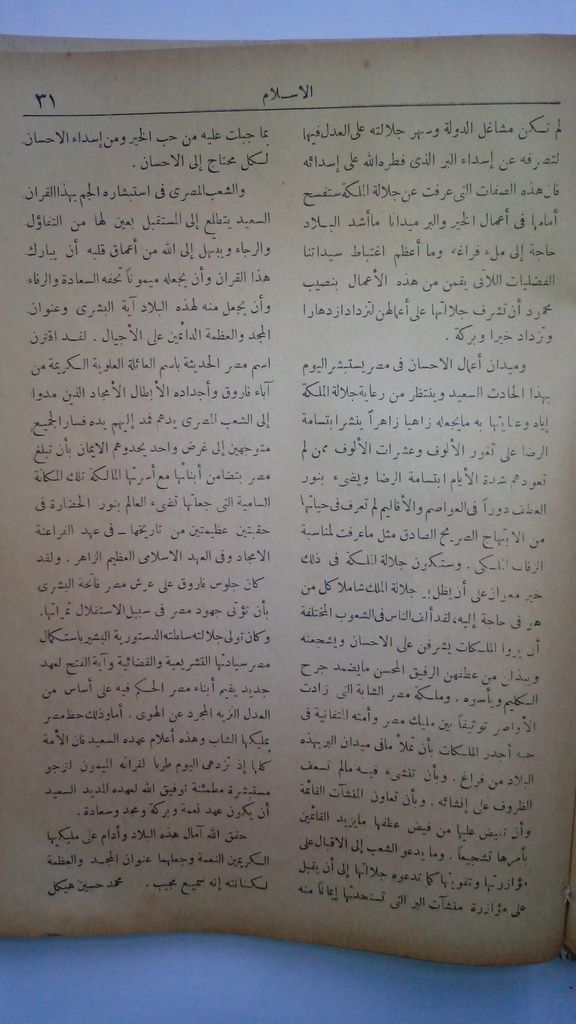 الاسلام
٣١
لم تكن مشاغل الدولة وسهر جلالته على العدل فيها
لتصرفه عن إسداء البر الذى فطره الله على إسدائه
فان هذه الصفات التى عرفت عن جلالة الملكة ستفسح
أمامها فى أعمال الخير والبر ميدانا ما أشد البلاد
حاجة إلى ملء فراغه وما أعظم اغتباط سيداتنا
الفضليات اللائى يقمن من هذه الأعمال بنصيب
محمود أن تشرف جلالتها على أعمالهن لتزداد ازدهارا
وتزداد خيرا وبركة .
وميدان أعمال الاحسان فى مصر يستبشر اليوم
بهذا الحادث السعيد وينتظر من رعاية جلالة الملكة
إياه وعنايتها به ما يجعله زاهيا زاهراً ينشر ابتسامة
الرضا على ثغور الألوف وعشرات الألوف ممن لم
تعودهم شدة الأيام ابتسامة الرضا ويضىء بنور
العطف دوراً فى العواصم والأقاليم لم تعرف فى حياتها
من الابتهاج الصريح الصادق مثل ما عرفت لمناسبة
الزفاف الملكى . وستكون جلالة الملكة فى ذلك
خير معوان على أن يظل بر جلالة الملك شاملا كل من
هو فى حاجة إليه، لقد ألف الناس فى الشعوب المختلفة
أن يروا الملكات يشرفن على الاحسان ويشجعنه
ويبذلن من عطفهن الرفيق المحسن ما يضمد جرح
الكليم ويأسوه . وملكة مصر الشابة التى زادت
الأواصر توثيقاً بين مليك مصر وأمته المتفانية فى
حبه أجدر الملكات بأن تملأ ما فى ميدان البر بهذه
البلاد من فراغ . وبأن تنشىء فيه مالم تسعف
الظروف على إنشائه . وبأن تعاون المنشآت القائمة
وأن تفيض عليها من فيض عطفها ما يزيد القائمين
بأمرها تشجيعاً . وما يدعو الشعب إلى الاقبال على
مؤازرتها وتقويتها كما تدعوه جلالتها إلى أن يقبل
على مؤازرة منشآت البر التى تستحدثها إيماناً منه
بما جبلت عليه من حب الخير ومن إسداء الاحسان
لكل محتاج إلى الاحسان .
والشعب المصرى فى استبشاره الجم بهذا القران
السعيد يتطلع إلى المستقبل بعين لها من التفاؤل
والرجاء ويبتهل إلى الله من أعماق قلبه أن يبارك
هذا القران وأن يجعله ميموناً تحفه السعادة والرفاء
وأن يجعل منه لهذه البلاد آية البشرى وعنوان
المجد والعظمة الدائمين على الأجيال . لقد اقترن
اسم مصر الحديثة باسم العائلة العلوية الكريمة من
آباء فاروق وأجداده الأبطال الأمجاد الذين مدوا
إلى الشعب المصرى يدهم فمد إليهم يده فسار الجميع
متوجهين إلى غرض واحد يحدوهم الايمان بأن تبلغ
مصر بتضامن أبنائها مع أسرتها المالكة تلك المكانة
السامية التى جعلتها تضىء العالم بنور الحضارة فى
حقبتين عظيمتين من تاريخها ــ فى عهد الفراعنة
الامجاد وفى العهد الاسلامى العظيم الزاهر . ولقد
كان جلوس فاروق على عرش مصر فاتحة البشرى
بأن تؤتى جهود مصر فى سبيل الاستقلال ثمراتها.
وكان تولى جلالته سلطته الدستورية البشير باستكمال
مصر سيادتها التشريعية والقضائية وآية الفتح لعهد
جديد يقيم أبناء مصر الحكم فيه على أساس من
العدل النزيه المجرد عن الهوى . أما وذلك حظ مصر
بمليكها الشاب وهذه أعلام عهده السعيد فان الأمة
كلها إذ تزدهى اليوم طربا لقرانه الميمون لترجو
مستبشرة مطمئنة توفيق الله لعهده المديد السعيد
أن يكون عهد نعمة وبركة ومجد وسعادة .
حقق الله آمال هذه البلاد وأدام على مليكيها
الكريمين النعمة وجعلهما عنوان المجد والعظمة
لكنانته إنه سميع مجيب . محمد حسين هيكل